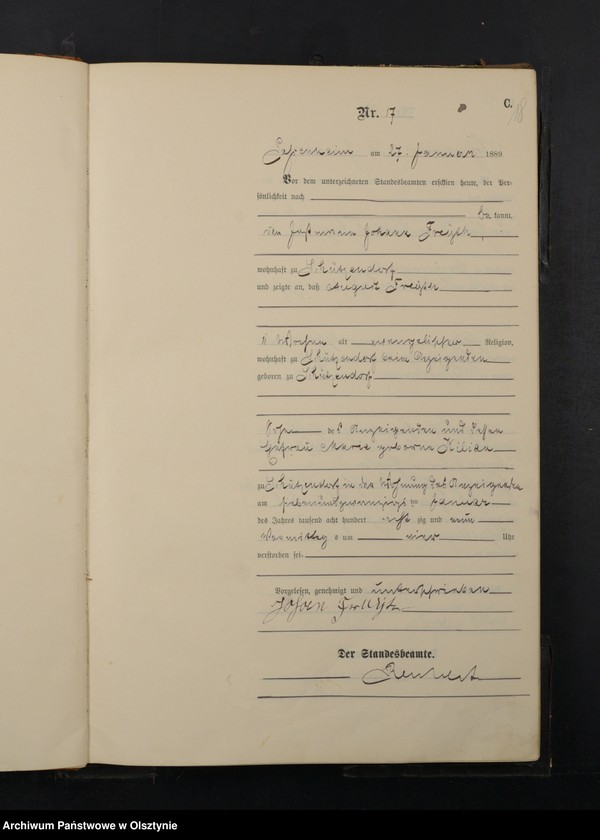 C.
18
Nr. 17
am 27. Januar 1889
Vor dem unterzeichneten Standesbeamten erschien heute, der Per-
sönlichkeit nach
be kannt,
den Johann
wohnhaft zu Schützendorf
und zeigte an, daß August
Wochen alt evangelischer Religion,
wohnhaft zu Schützendorf beim Anzeigenden
geboren zu Schützendorf
Sohn des Anzeigenden und dessen
Ehefrau Marie geborne Kilian
zu Schützendorf in der Wohnung des Anzeigenden
am siebenundzwanzigsten Januar
des Jahres tausend acht hundert acht zig und neun
Vormittags um vier Uhr
verstorben sei.
Vorgelesen, genehmigt und unterschrieben
Johann
Der Standesbeamte.
Archiwum Państwowe w Olsztynie